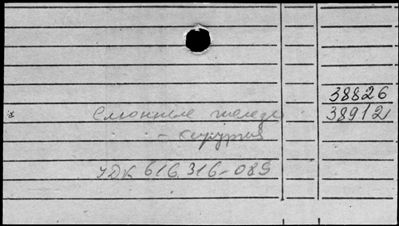 38826
Слюнные железы 38912
- хирургия
УДК 616.316-089